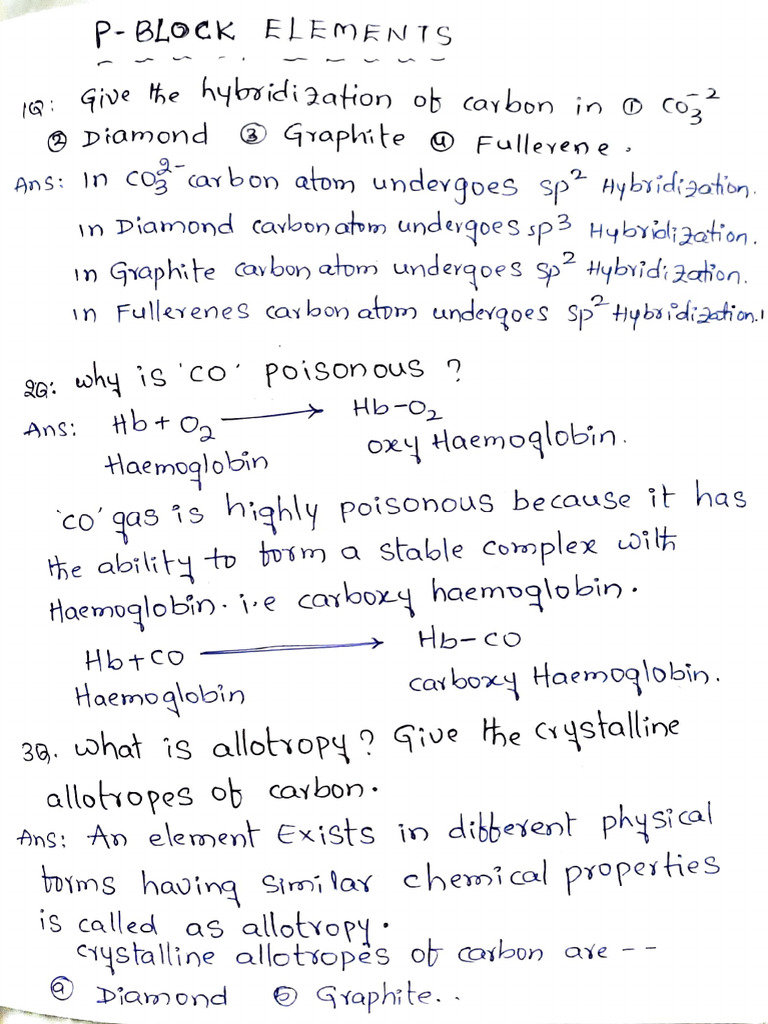 P-BLOCK ELEMENTS
1Q: Give the hybridization of carbon in ① CO₃⁻²
② Diamond ③ Graphite ④ Fullerene.
Ans: In CO₃²⁻ carbon atom undergoes sp² Hybridization.
in Diamond carbon atom undergoes sp3 Hybridization.
in Graphite carbon atom undergoes sp² Hybridization.
in Fullerenes carbon atom undergoes sp² Hybridization.
2Q: why is 'CO' poisonous ?
Ans: Hb + O₂ ⟶ Hb-O₂
Haemoglobin oxy Haemoglobin.
'CO' gas is highly poisonous because it has
the ability to form a stable complex with
Haemoglobin. i.e carboxy haemoglobin.
Hb+CO ⟶ Hb-CO
Haemoglobin carboxy Haemoglobin.
3Q. What is allotropy? Give the crystalline
allotropes of carbon.
Ans: An element Exists in different physical
forms having similar chemical properties
is called as allotropy.
crystalline allotropes of carbon are --
ⓐ Diamond ⓑ Graphite..